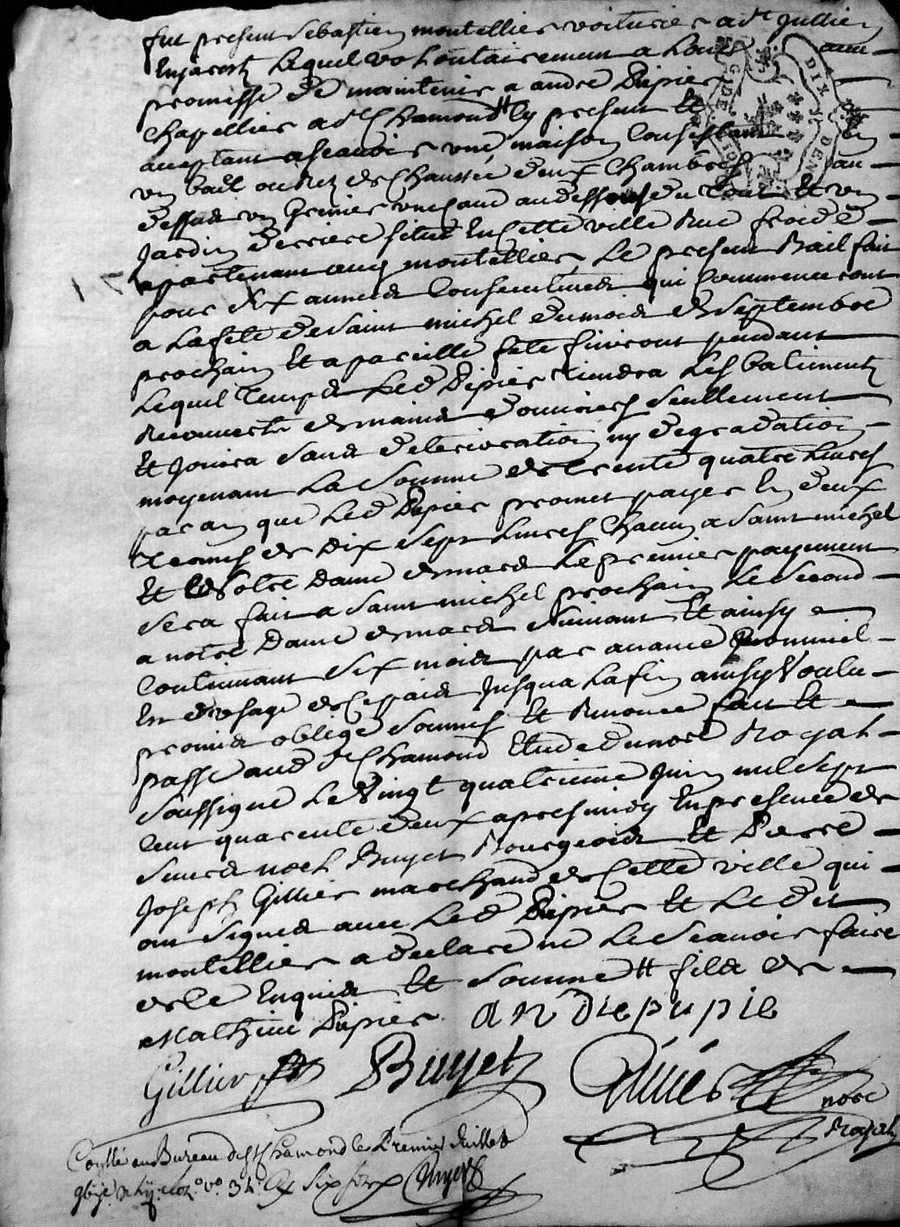 fut present Sebastien montellier voiturier a St Jullien
En jarest Lequel volontairement a Loué avec
promesse de maintenir a andré Pipier
Chapellier a St Chamond ## cy present Et
acceptant a scavoir une maison Consistant En
un bail ou Rez de Chaussée deux Chambres au
dessus un Grenier une Cave au dessous du tout Et un
Jardin derriere situé En cette ville Rue froide
apartenant aud montellier Le present Bail fait
pour six années Consecutives qui Commenceront
a La fete de Saint michel du mois de Septembre
prochain Et a pareille fete finiront pendant
Lequel temps Led Pipier tiendra Les batiments
Recouverts de mains d'ouvriers Seullement
Et Jouira Sans deterioration ny degradation
moyenant La Somme de trente quatre Livres
par an que Led Pipier promet payer En deux
termes de Dix Sept Livres Chacun a Saint michel
Et Notre Dame de mars Le premier payement
Sera fait a Saint michel prochain Le Second
a notre Dame de mars Suivant Et ainsy
Continuant Six mois par avance
Jusqua La fin ainsy Voulu
promis obligé Soumis Et Renoncé fait Et
passé aud St Chamond Etude du nore Royal
Soussigné Le Vingt quatrieme Juin mil Sept
Cent quarente deux apres midy En presence de
Sieurs noel Buyet Bourgeois Et Pierre
Joseph Gillier marchand de Cette ville qui
ont Signé avec Led Pipier Et Le dit
montellier a declaré ne Le Scavoir faire
de ce Enquis Et Sommé ## fils de
Mathieu Pipier. andre pupie
Gillier Buyet
nore
Royal
Conllé au Bureau de St Chamond le Premier Juillet
vo. 34. Six sols